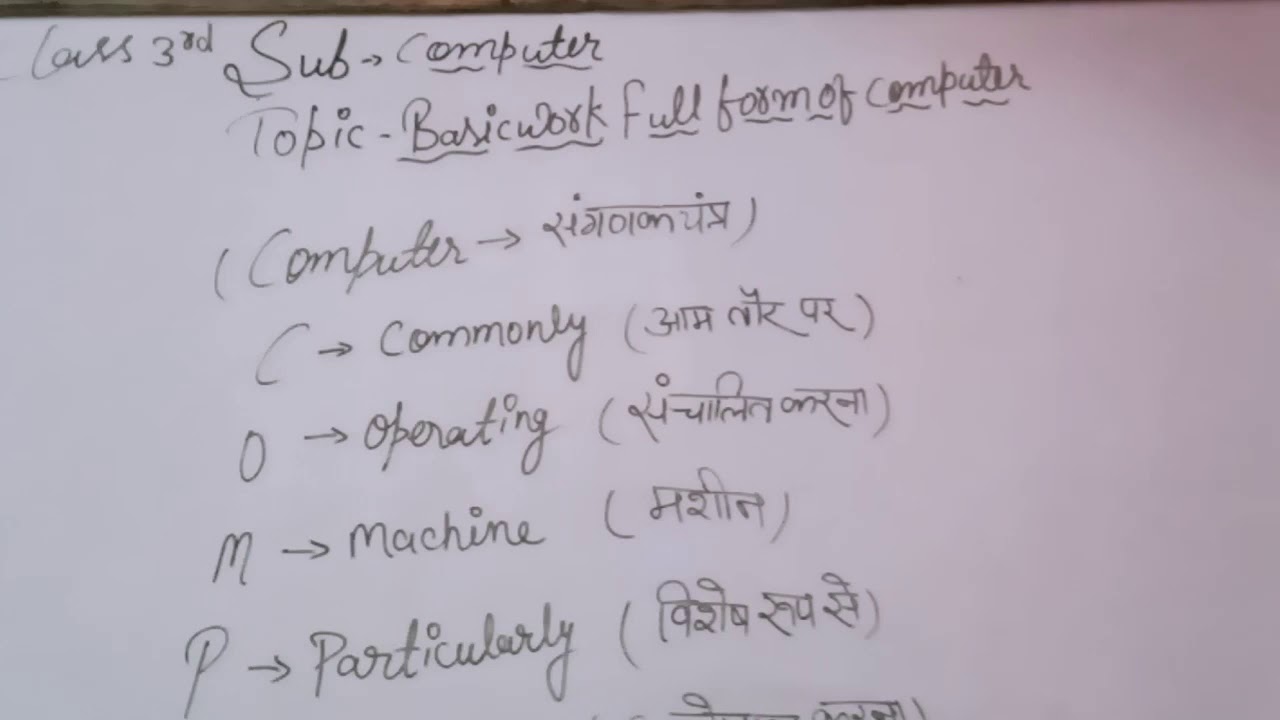 Class 3rd Sub → Computer
Topic - Basic work Full form of computer
(Computer → संगणक यंत्र)
C → Commonly (आम तौर पर)
O → Operating (संचालित करना)
M → Machine (मशीन)
P → Particularly (विशेष रूप से)
करना)